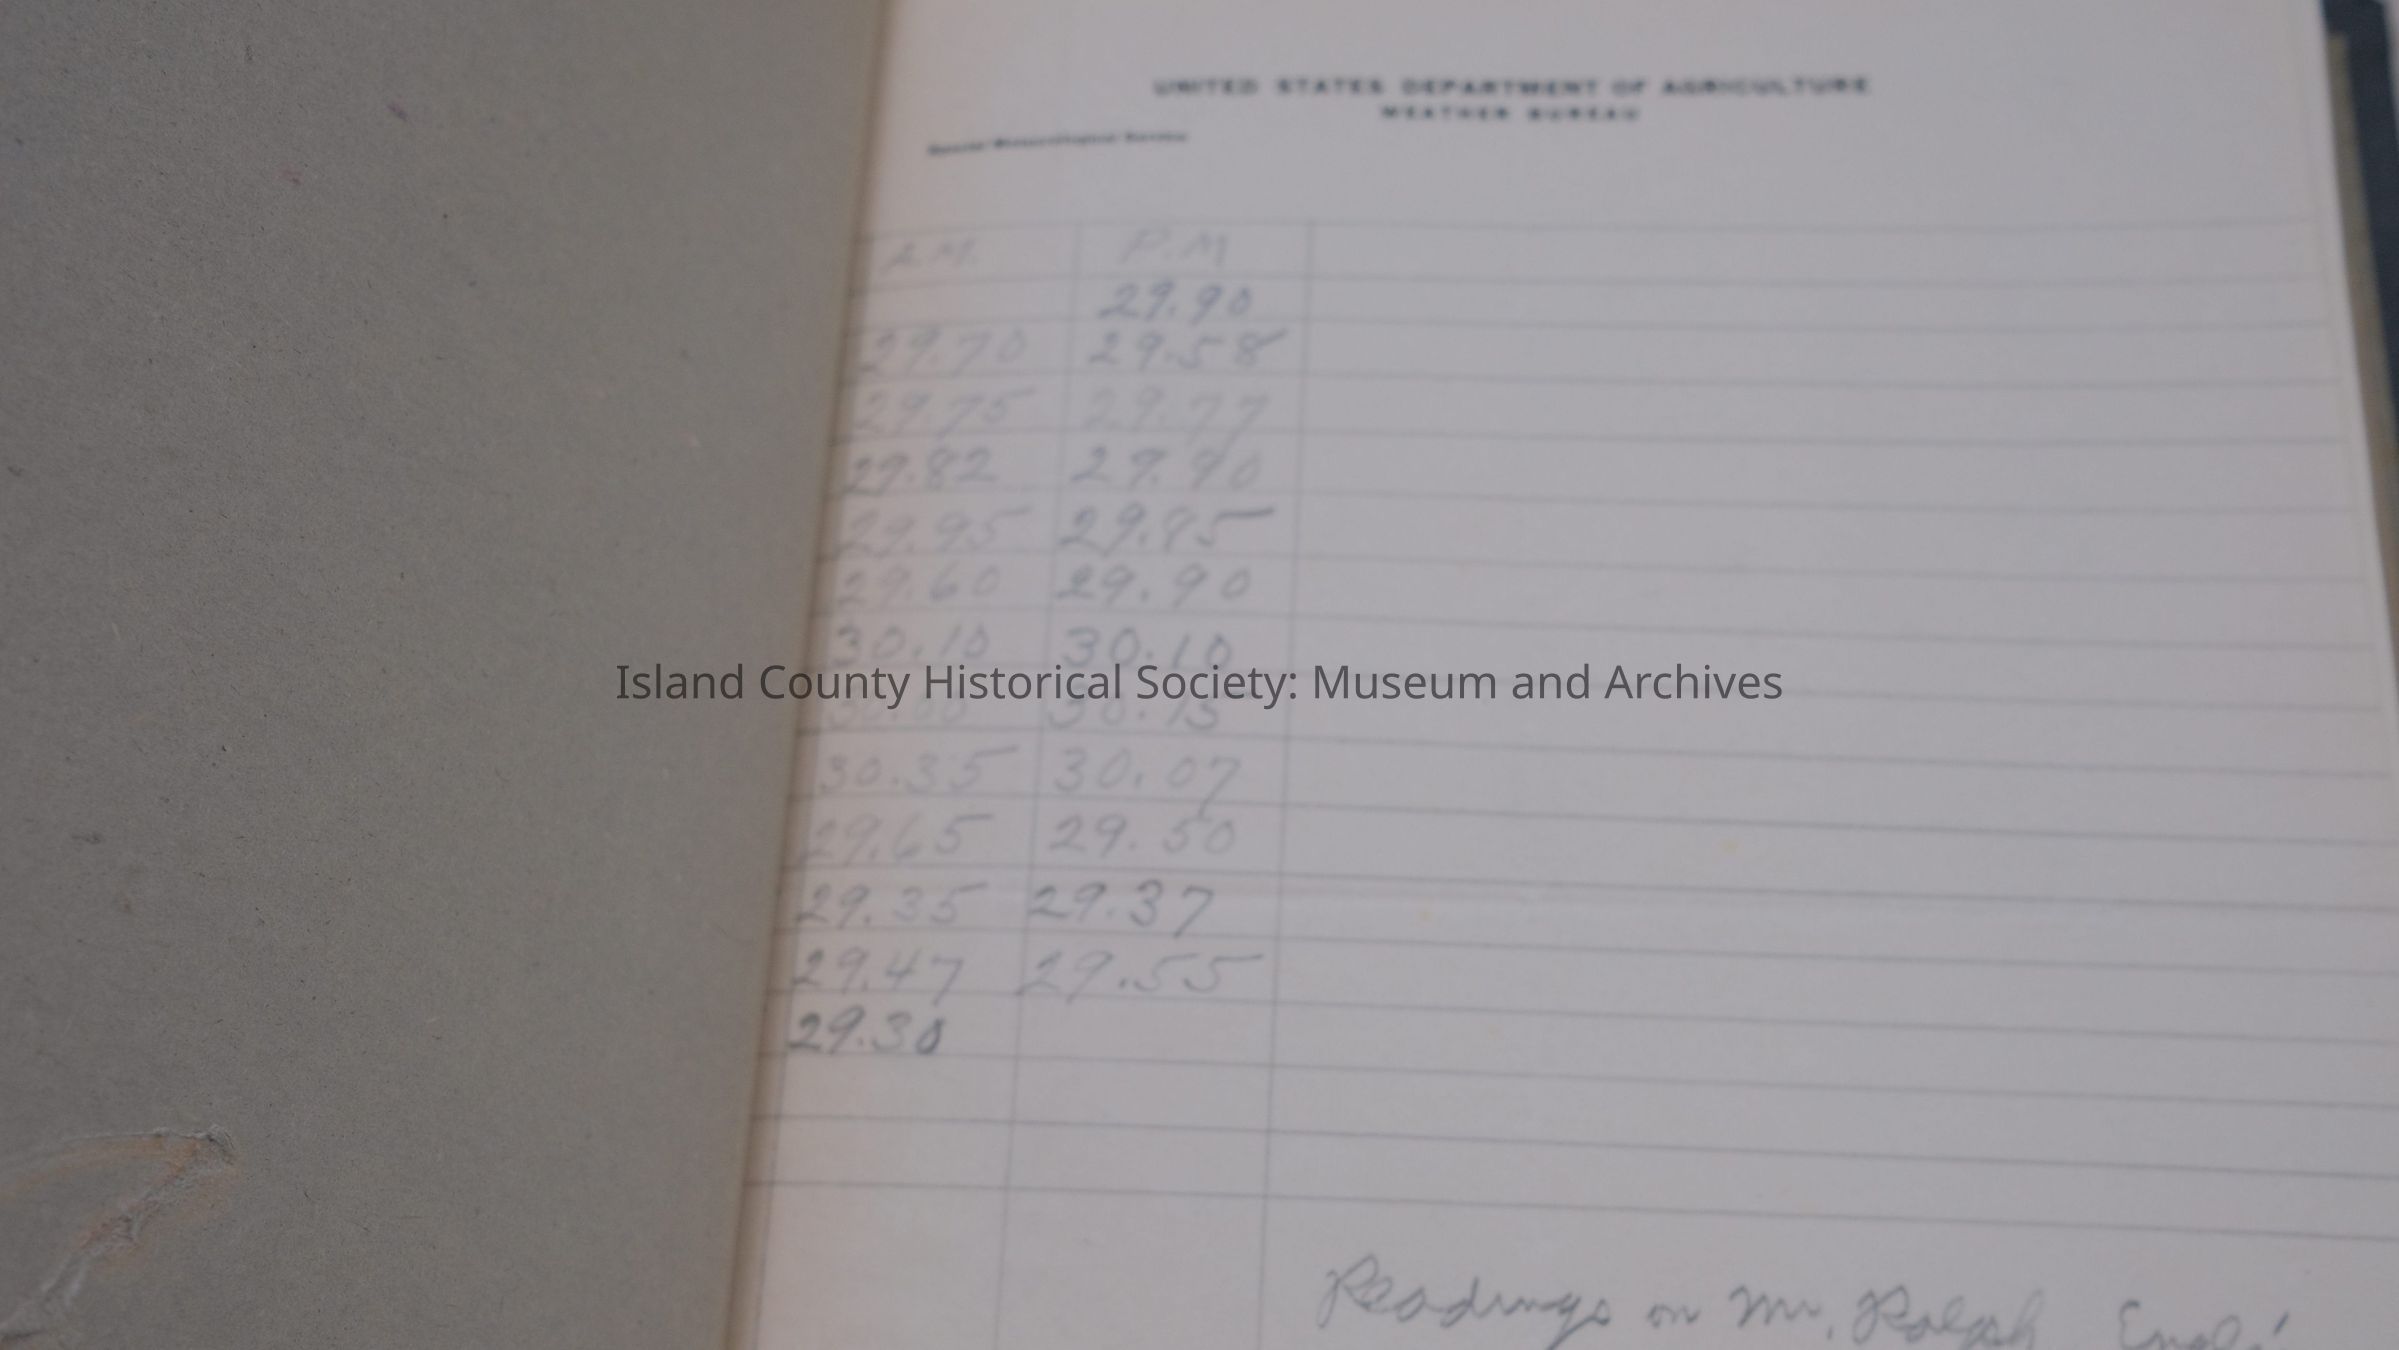 UNITED STATES DEPARTMENT OF AGRICULTURE
WEATHER BUREAU
Special Meteorological Service
A.M. P.M
29.90
29.70 29.58
29.75 29.77
29.82 29.90
29.95 29.85
29.60 29.90
30.10 30.10
Island County Historical Society: Museum and Archives
30.15
30.35 30.07
29.65 29.50
29.35 29.37
29.47 29.55
29.30
Readings on Mr. Ralph